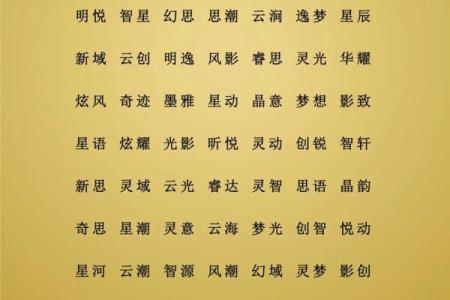 明悦 智星 幻思 思潮 云涧 逸梦 星辰
新域 云创 明逸 风影 睿思 灵光 华耀
炫风 奇迹 墨雅 星动 晶意 梦想 影致
星语 炫耀 光影 昕悦 灵动 创锐 智轩
新思 灵域 云光 睿达 灵智 思语 晶韵
奇思 星潮 灵意 云海 梦光 创智 悦动
星河 云潮 智源 风潮 幻域 灵梦 影创